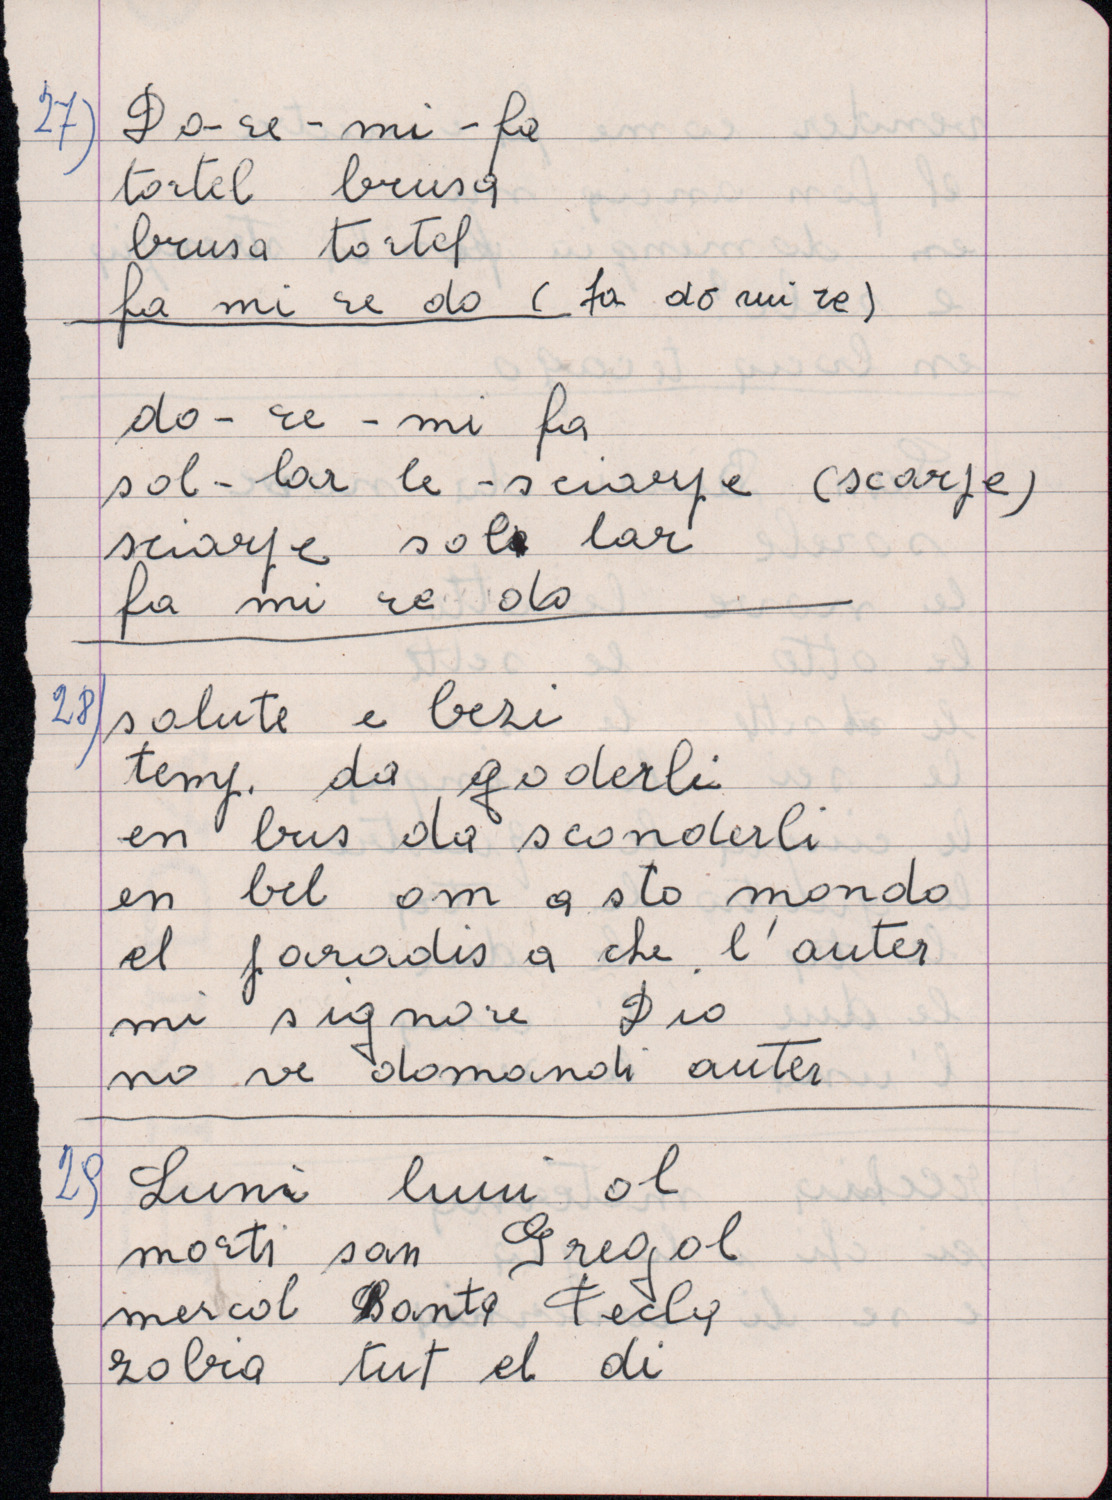 27) Do-re-mi-fa
tortel brusa
brusa tortel
fa mi re do (fa do mi re)
do-re-mi fa
sol-lar le-sciarpe (scarpe)
sciarpe sol lar
fa mi re do
28) salute e bezi
temp. da goderli
en bus da sconderli
en bel om a sto mondo
el paradis a che l'auter
mi signore Dio
no ve domandi auter
29) Luni luni ol
morti san Gregol
mercol Santa Tecla
zobia tut el di